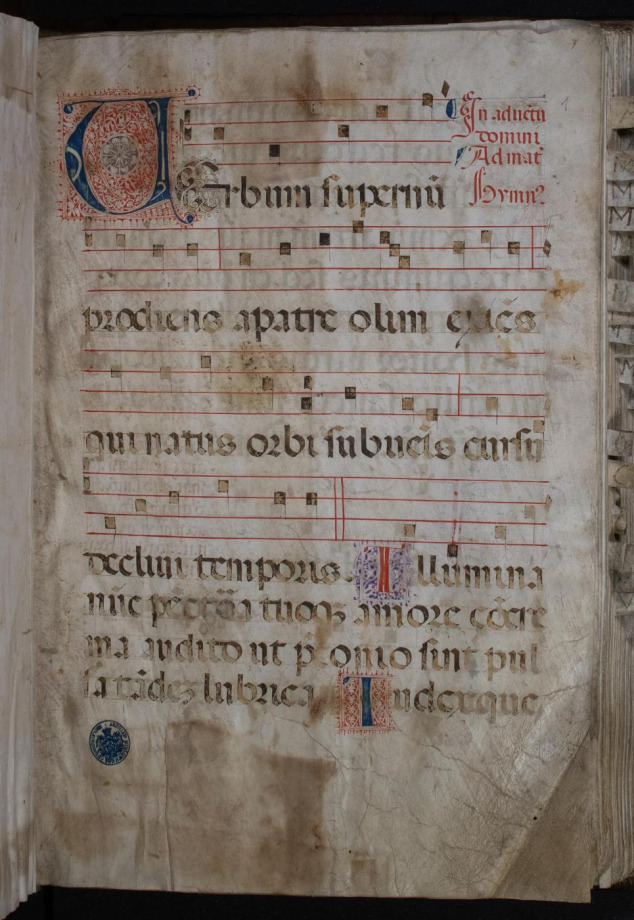 In aduētu
domini
Ad mat
Hymnꝰ
VErbum supernū
prodiens apatre olim exiēs
qui natus orbi subueīs cursu
declivi temporis. Illumina
nūc pectora tuoqꝫ amore
ma audito ut p̄conio sint pul
sa tādēꝫ lubrica Iudexque